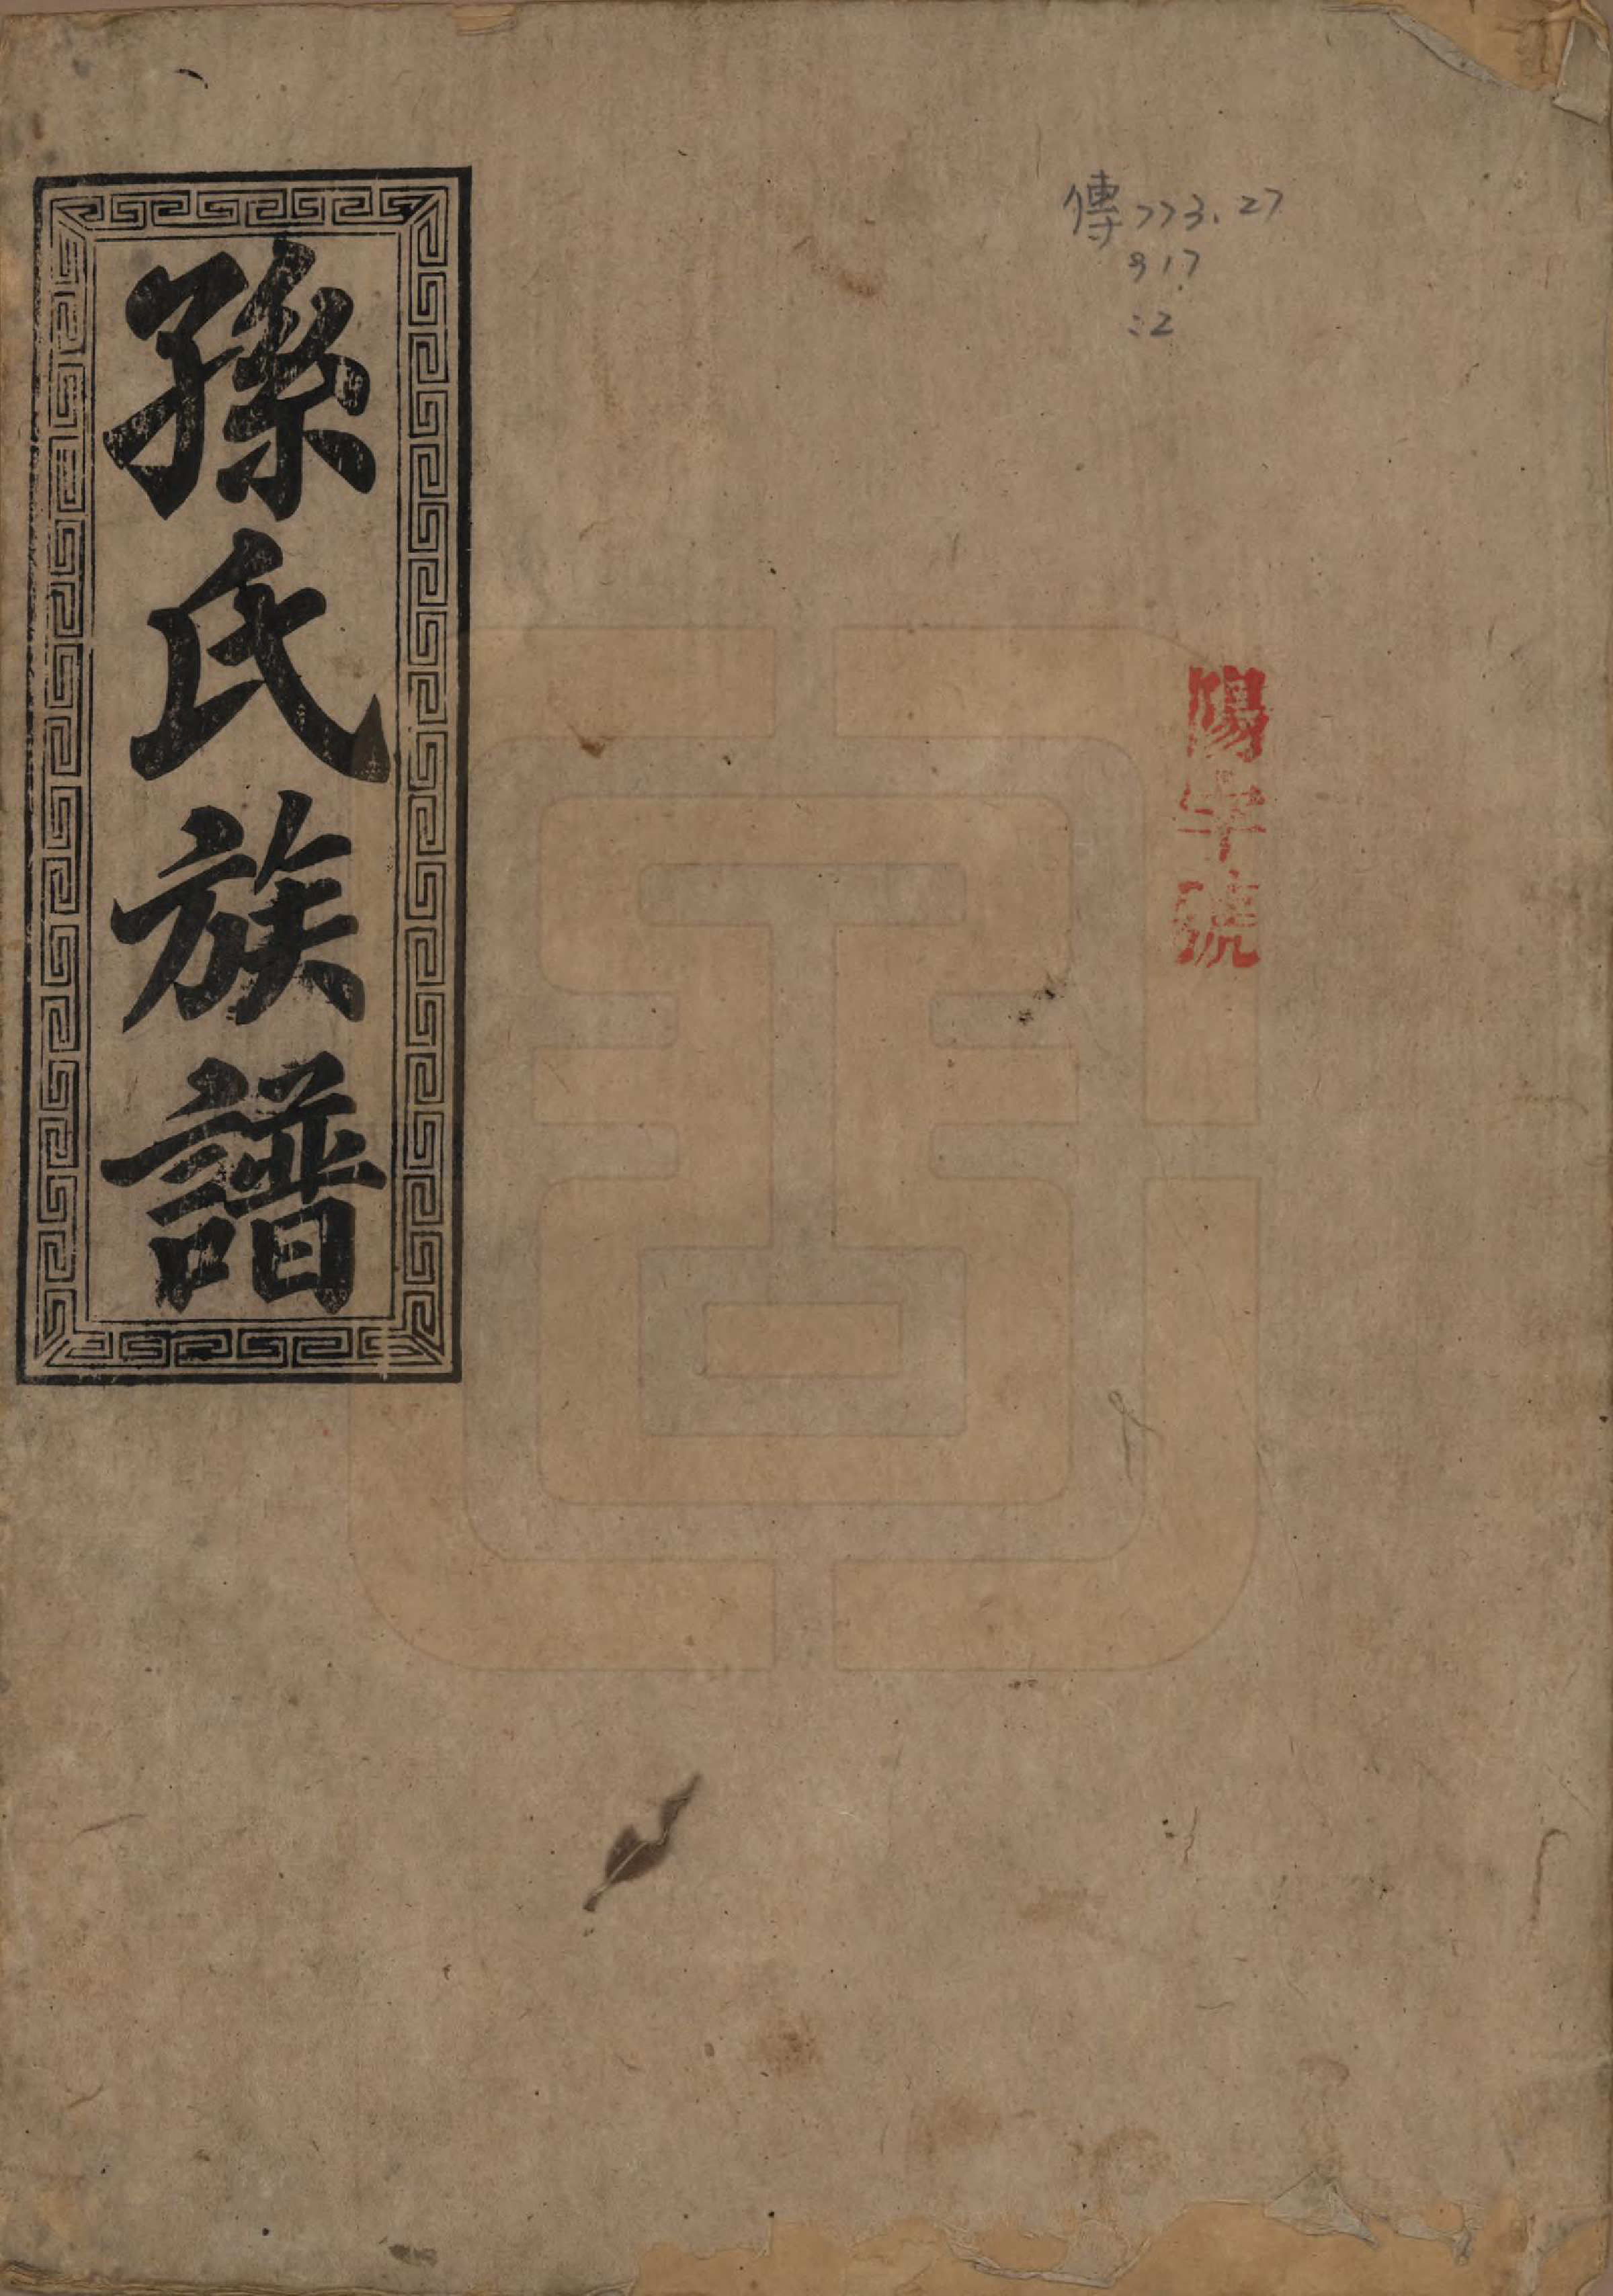 傳773.27
917
:2
陽字號
孫氏族譜